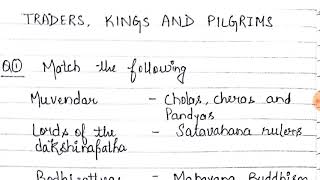 TRADERS, KINGS AND PILGRIMS
Q① Match the following
Muvendar - Cholas, cheras and
Pandyas
Lords of the - Satavahana rulers
dakshinapatha
Bodhisattvas - Mahayana Buddhism